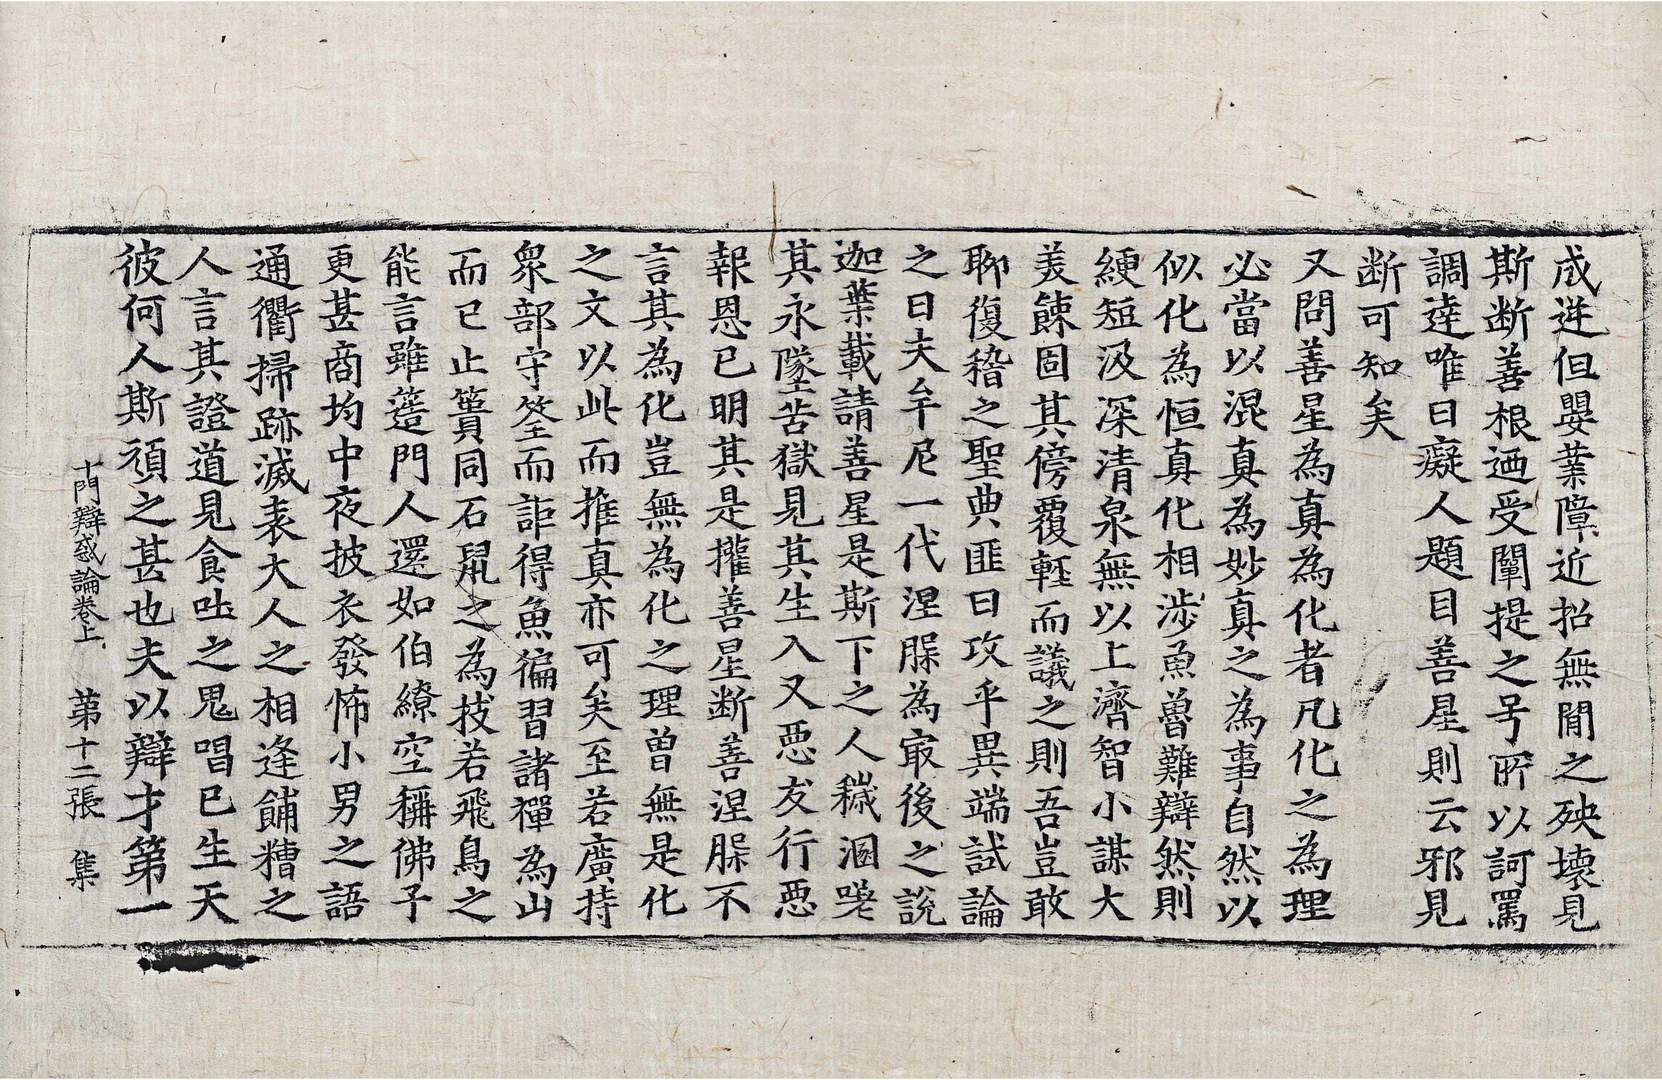 成逆但嬰業障近招無間之殃壞見
斯断善根迺受闡提之号所以訶罵
調達唯曰癡人題目善星則云邪見
断可知矣
又問善星為真為化者凡化之為理
必當以混真為妙真之為事自然以
似化為恒真化相涉魚魯難辯然則
綆短汲深清泉無以上濟智小謀大
美餗固其傍覆輕而議之則吾豈敢
聊復稽之聖典匪曰攻乎異端試論
之曰夫牟尼一代涅槃為㝡後之說
迦葉載請善星是斯下之人穢溷嗟
其永墜苦獄見其生入又惡友行惡
報恩已明其是攉善星断善涅槃不
言其為化豈無為化之理曽無是化
之文以此而推真亦可矣至若廣持
衆部守筌而詎得魚徧習諸禪為山
而已止簣同石鼠之為技若飛鳥之
能言雖簉門人還如伯繚空稱佛子
更甚商均中夜披衣發怖小男之語
通衢掃跡滅表大人之相逢餔糟之
人言其證道見食吐之鬼唱已生天
彼何人斯頑之甚也夫以辯才第一
十門辯惑論卷上 第十二張 集